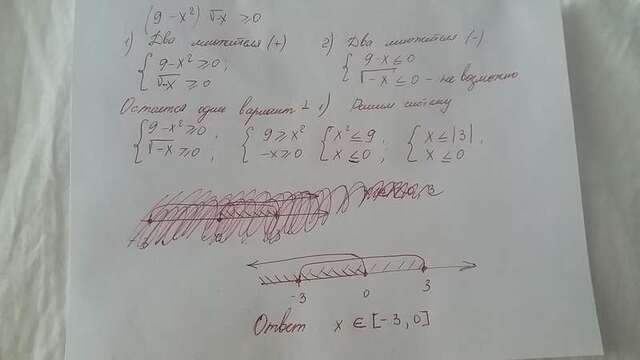 (9 - x²) √-x ≥ 0
1) Два множителя (+) 2) Два множителя (-)
{ 9-x² ≥ 0; { 9-x ≤ 0
{ √-x ≥ 0 { √-x ≤ 0 - не возможно
Остается один вариант 1) Решим систему
{ 9-x² ≥ 0, { 9 ≥ x² { x² ≤ 9 { x ≤ |3|,
{ √-x ≥ 0, { -x ≥ 0 { x ≤ 0 ; { x ≤ 0
-3 0 3
Ответ x ∈ [-3, 0]